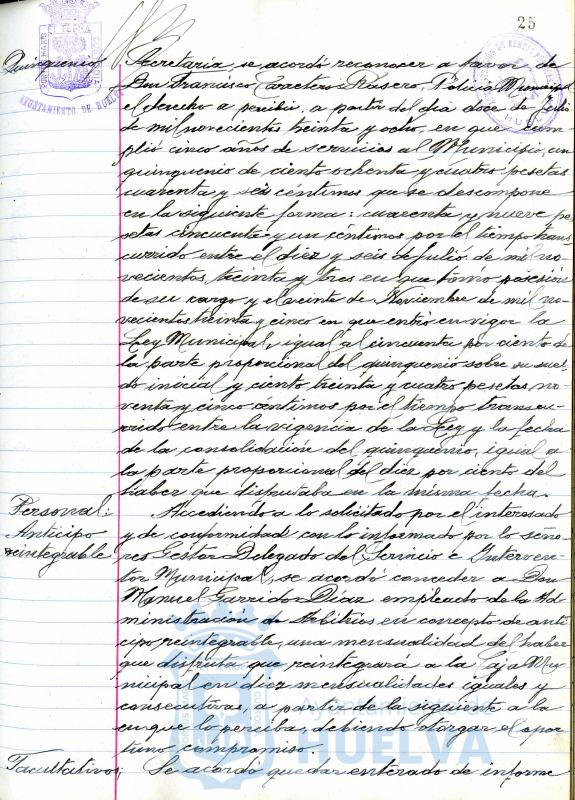 25
Quinquenio
Secretaria, se acordó reconocer a favor de
Don Francisco Rasero, Policia Municipal
el derecho a percibir, a partir del dia doce de Julio
de mil novecientos treinta y ocho, en que cum-
plió cinco años de servicios al Municipio, un
quinquenio de ciento ochenta y cuatro pesetas
cuarenta y seis céntimos que se descompone
en la siguiente forma: cuarenta y nueve pe-
setas cincuenta y un céntimos por el tiempo trans-
currido entre el diez y seis de Julio de mil no-
vecientos treinta y tres en que tomó posesión
de su cargo y el veinte de Noviembre de mil no-
vecientos treinta y cinco en que entró en vigor la
Ley Municipal, igual al cincuenta por ciento de
la parte proporcional del quinquenio sobre su suel-
do inicial y ciento treinta y cuatro pesetas, no-
venta y cinco céntimos por el tiempo transcu-
rrido entre la vigencia de la Ley y la fecha
de la consolidación del quinquenio, igual a
la parte proporcional del diez por ciento del
haber que disfrutaba en la misma fecha.
Personal:
Anticipo
reintegrable
Accediendo a lo solicitado por el interesado
y de conformidad con lo informado por lo seño-
res Gestor Delegado del Servicio e Interven-
tor Municipal, se acordó conceder a Don
Manuel Garrido Díaz empleado de la Ad-
ministración de Arbitrios en concepto de anti-
cipo reintegrable, una mensualidad del haber
que disfruta que reintegrará a la Caja Mu-
nicipal en diez mensualidades iguales y
consecutivas, a partir de la siguiente a la
en que lo perciba, debiendo otorgar el opor-
tuno compromiso.
Facultativos:
Se acordó quedar enterado de informe
AYUNTAMIENTO DE HUELVA
HUELVA
Ayuntamiento de
HUELVA